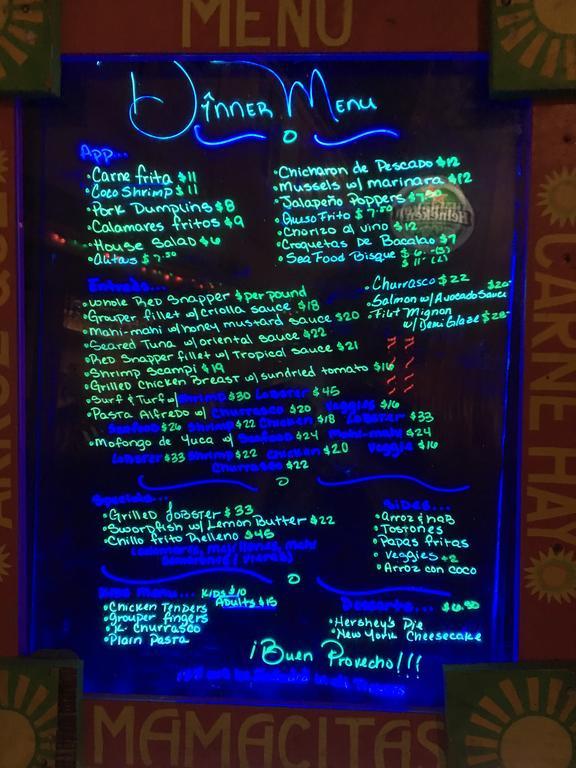 MENU
Dinner Menu
App...
• Carne frita $11
• Coco Shrimp $11
• Pork Dumplins $8
• Calamares fritos $9
• House Salad $6
• Alitas $7.50
• Chicharon de Pescado $12
• Mussels w/ marinara $12
• Jalapeño Poppers $7.50
• Queso Frito $7.50
• Chorizo al vino $12
• Croquetas De Bacalao $9
• Sea Food Bisque $6
Heineken
Entrees...
• whole Red Snapper $ per pound
• Grouper fillet w/ criolla sauce $18
• Mahi-mahi w/ honey mustard sauce $20
• Seared Tuna w/ oriental sauce $22
• Red Snapper fillet w/ Tropical sauce $21
• Shrimp Scampi $19
• Grilled Chicken Breast w/ sundried tomato $16
• Surf & Turf w/ Shrimp $30 Lobster $45
• Pasta Alfredo w/ Churrasco $20 Veggies $16
Seafood $26 Shrimp $22 Chicken $18 Lobster $33
• Mofongo de Yuca w/ Seafood $24 Mahi-mahi $24
Lobster $33 Shrimp $22 Chicken $20 Veggie $16
Churrasco $22
• Churrasco $22
• Salmon w/ Avocado Sauce $20
• Filet Mignon
w/ Demi Glaze $28
Specials...
• Grilled Lobster $33
• Swordfish w/ Lemon Butter $22
• Chillo frito Relleno $45
Sides...
• Arroz & hab
• Tostones
• Papas fritas
• Veggies +2
• Arroz con coco
Kids Menu... Kids $10
Adults $15
• Chicken Tenders
• Grouper fingers
• K. Churrasco
• Plain Pasta
Desserts... $6.50
• Hershey's Pie
• New York Cheesecake
¡Buen Provecho!!!
MAMACITAS
CARNE HAY